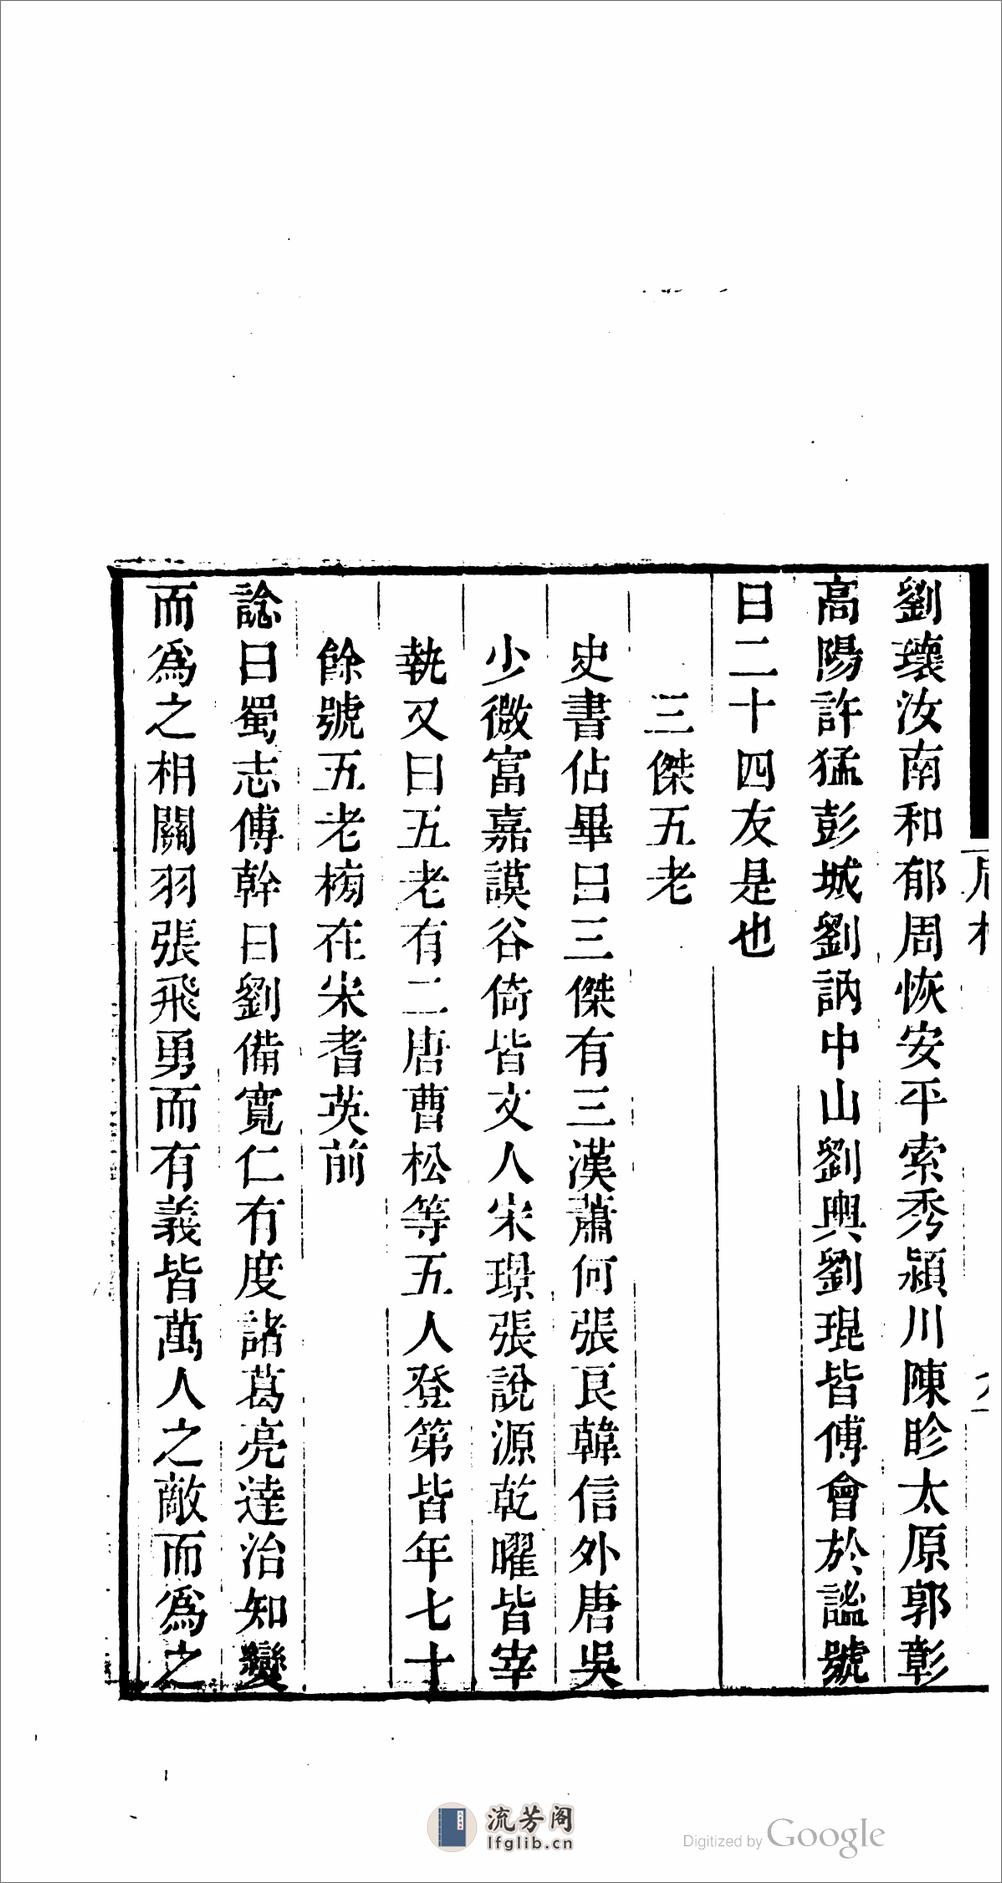 劉瓌汝南和郁周恢安平索秀潁川陳眕太原郭彰
高陽許猛彭城劉訥中山劉輿劉琨皆傅會於謐號
曰二十四友是也
三傑五老
史書佔畢曰三傑有三漢蕭何張良韓信外唐吳
少微富嘉謨谷倚皆文人宋璟張說源乾曜皆宰
執又曰五老有二唐曹松等五人登第皆年七十
餘號五老榜在宋耆英前
諗曰蜀志傅幹曰劉備寬仁有度諸葛亮達治知變
而為之相關羽張飛勇而有義皆萬人之敵而為之
流芳阁
lfglib.cn
Digitized by Google